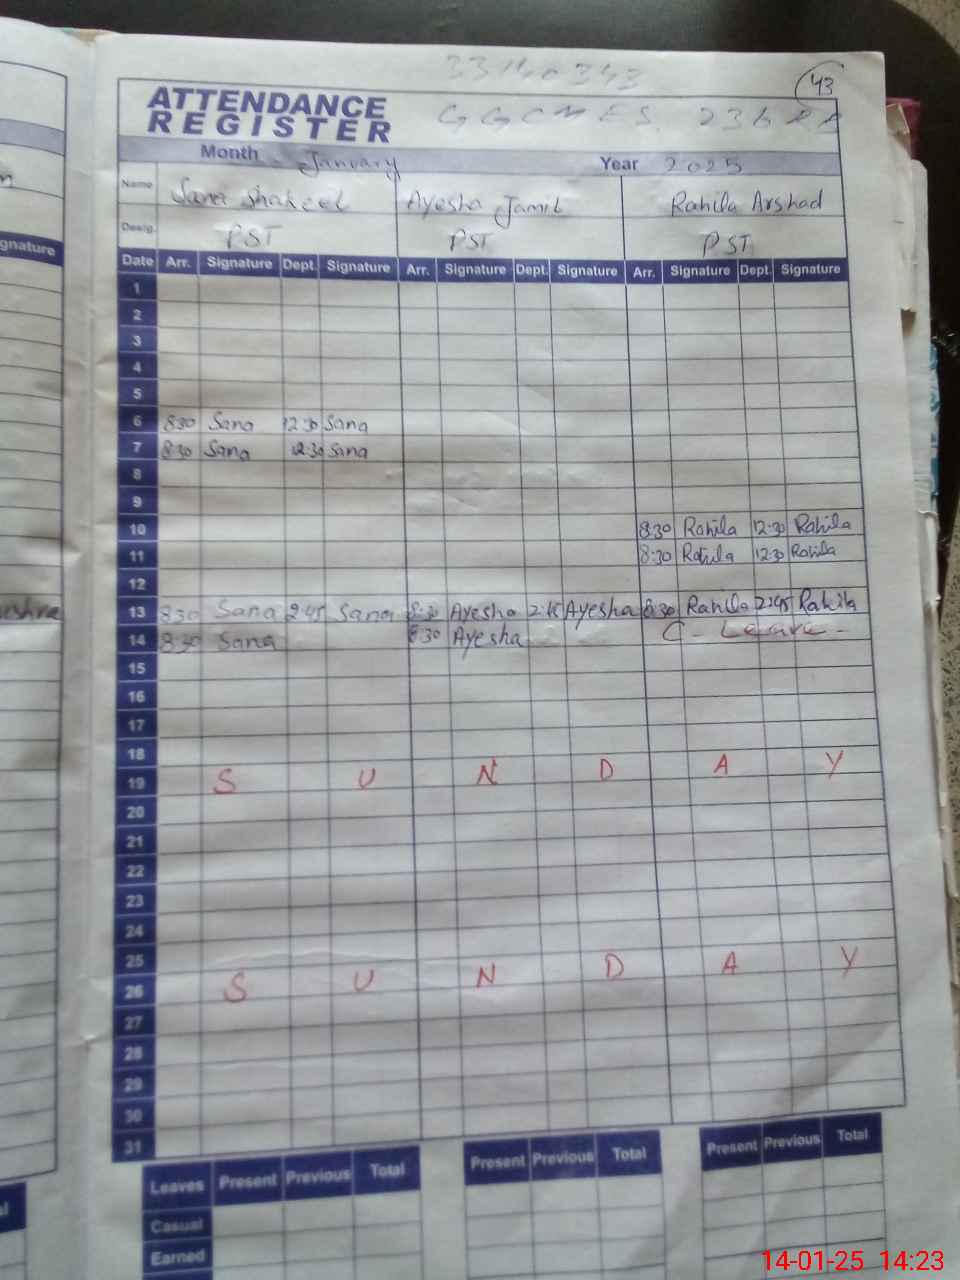 33140343
43
ATTENDANCE
REGISTER
GGCMES 236
Month January Year 2025
Name Sana Shakeel Ayesha Jamil Rahila Arshad
Desig. PST PST PST
Date Arr. Signature Dept. Signature Arr. Signature Dept. Signature Arr. Signature Dept. Signature
1
2
3
4
5
6 8:30 Sana 12:30 Sana
7 8:30 Sana 12:30 Sana
8
9
10 8:30 Rahila 12:30 Rahila
11 8:30 Rahila 12:30 Rahila
12
13 8:30 Sana 2:45 Sana 8:30 Ayesha 2:45 Ayesha 8:30 Rahila 2:45 Rahila
14 8:30 Sana 8:30 Ayesha C - Leave -
15
16
17
18
19 S U N D A Y
20
21
22
23
24
25
26 S U N D A Y
27
28
29
30
31
Leaves Present Previous Total Present Previous Total Present Previous Total
Casual
Earned
gnature
14-01-25 14:23